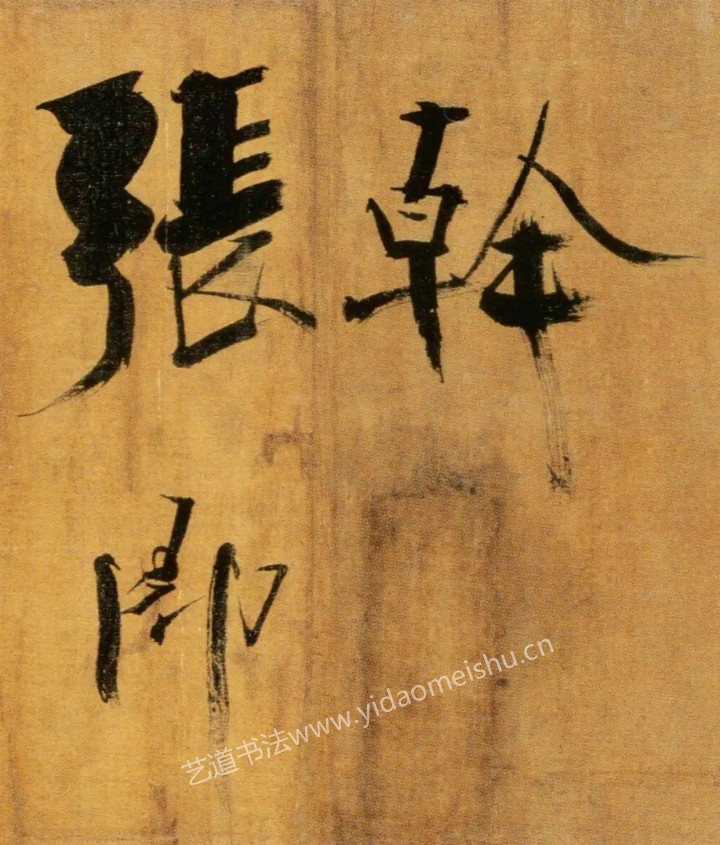 幹
張卿
艺道书法www.yidaomeishu.cn